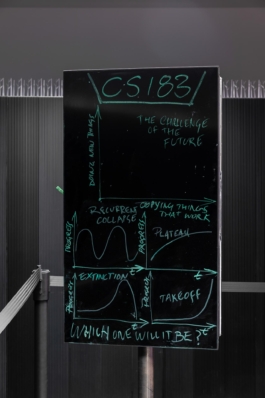 CS183
THE CHALLENGE
OF THE
FUTURE
DOING NEW THINGS
COPYING THINGS
THAT WORK
RECURRENT
COLLAPSE
PROGRESS
t
PLATEAU
PROGRESS
t
EXTINCTION
PROGRESS
t
TAKEOFF
PROGRESS
t
WHICH ONE WILL IT BE?